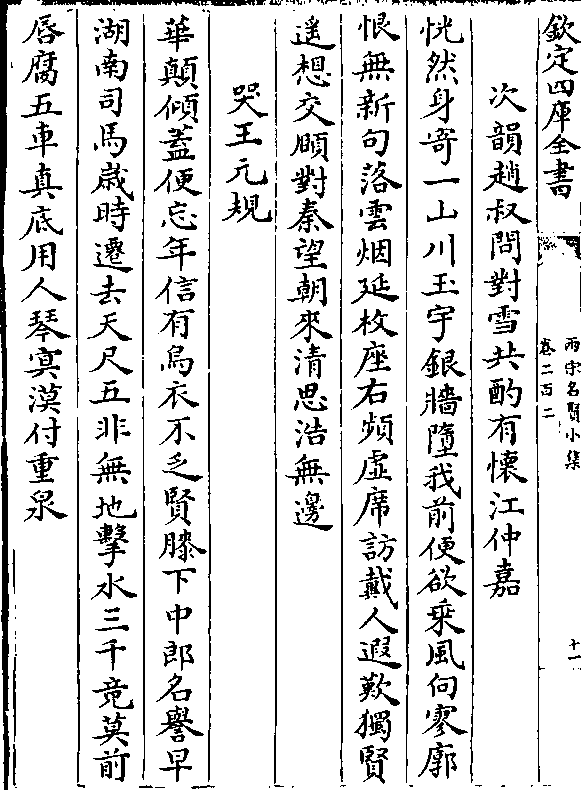 欽定四庫全書
兩宋名賢小集
卷二百二
十一
次韻趙叔問對雪共酌有懷江仲嘉
恍然身寄一山川玉宇銀牆墮我前便欲乗風向寥廓
恨無新句落雲烟延枚座右頻虛席訪戴人遐歎獨賢
遥想交頤對秦望朝來清思浩無邊
哭王元規
華顛傾蓋便忘年信有烏衣不乏賢膝下中郎名譽早
湖南司馬歳時遷去天尺五非無地擊水三千竟莫前
唇腐五車真底用人琴寞漠付重泉